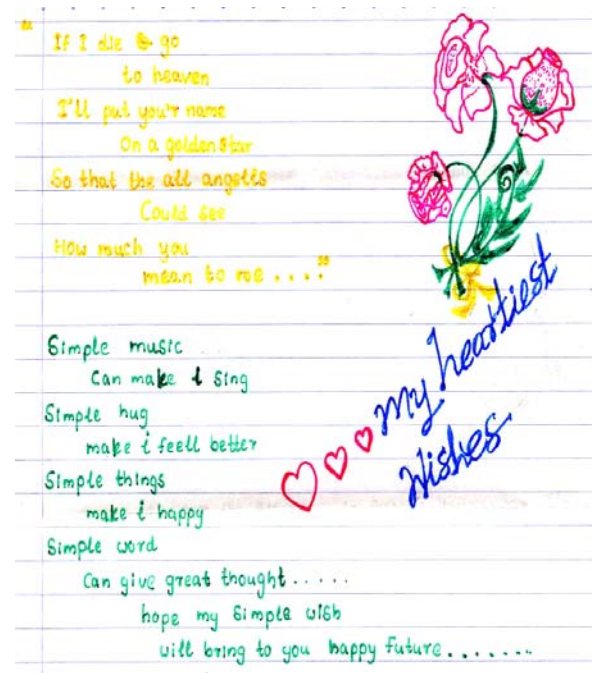 "If I die & go
to heaven
I'll put you'r name
On a golden star
So that the all angells
Could see
How much you
mean to me ...."
Simple music
Can make i sing
Simple hug
make i feell better
Simple things
make i happy
Simple word
Can give great thought .....
hope my simple wish
will bring to you happy future ........
My heartiest
Wishes